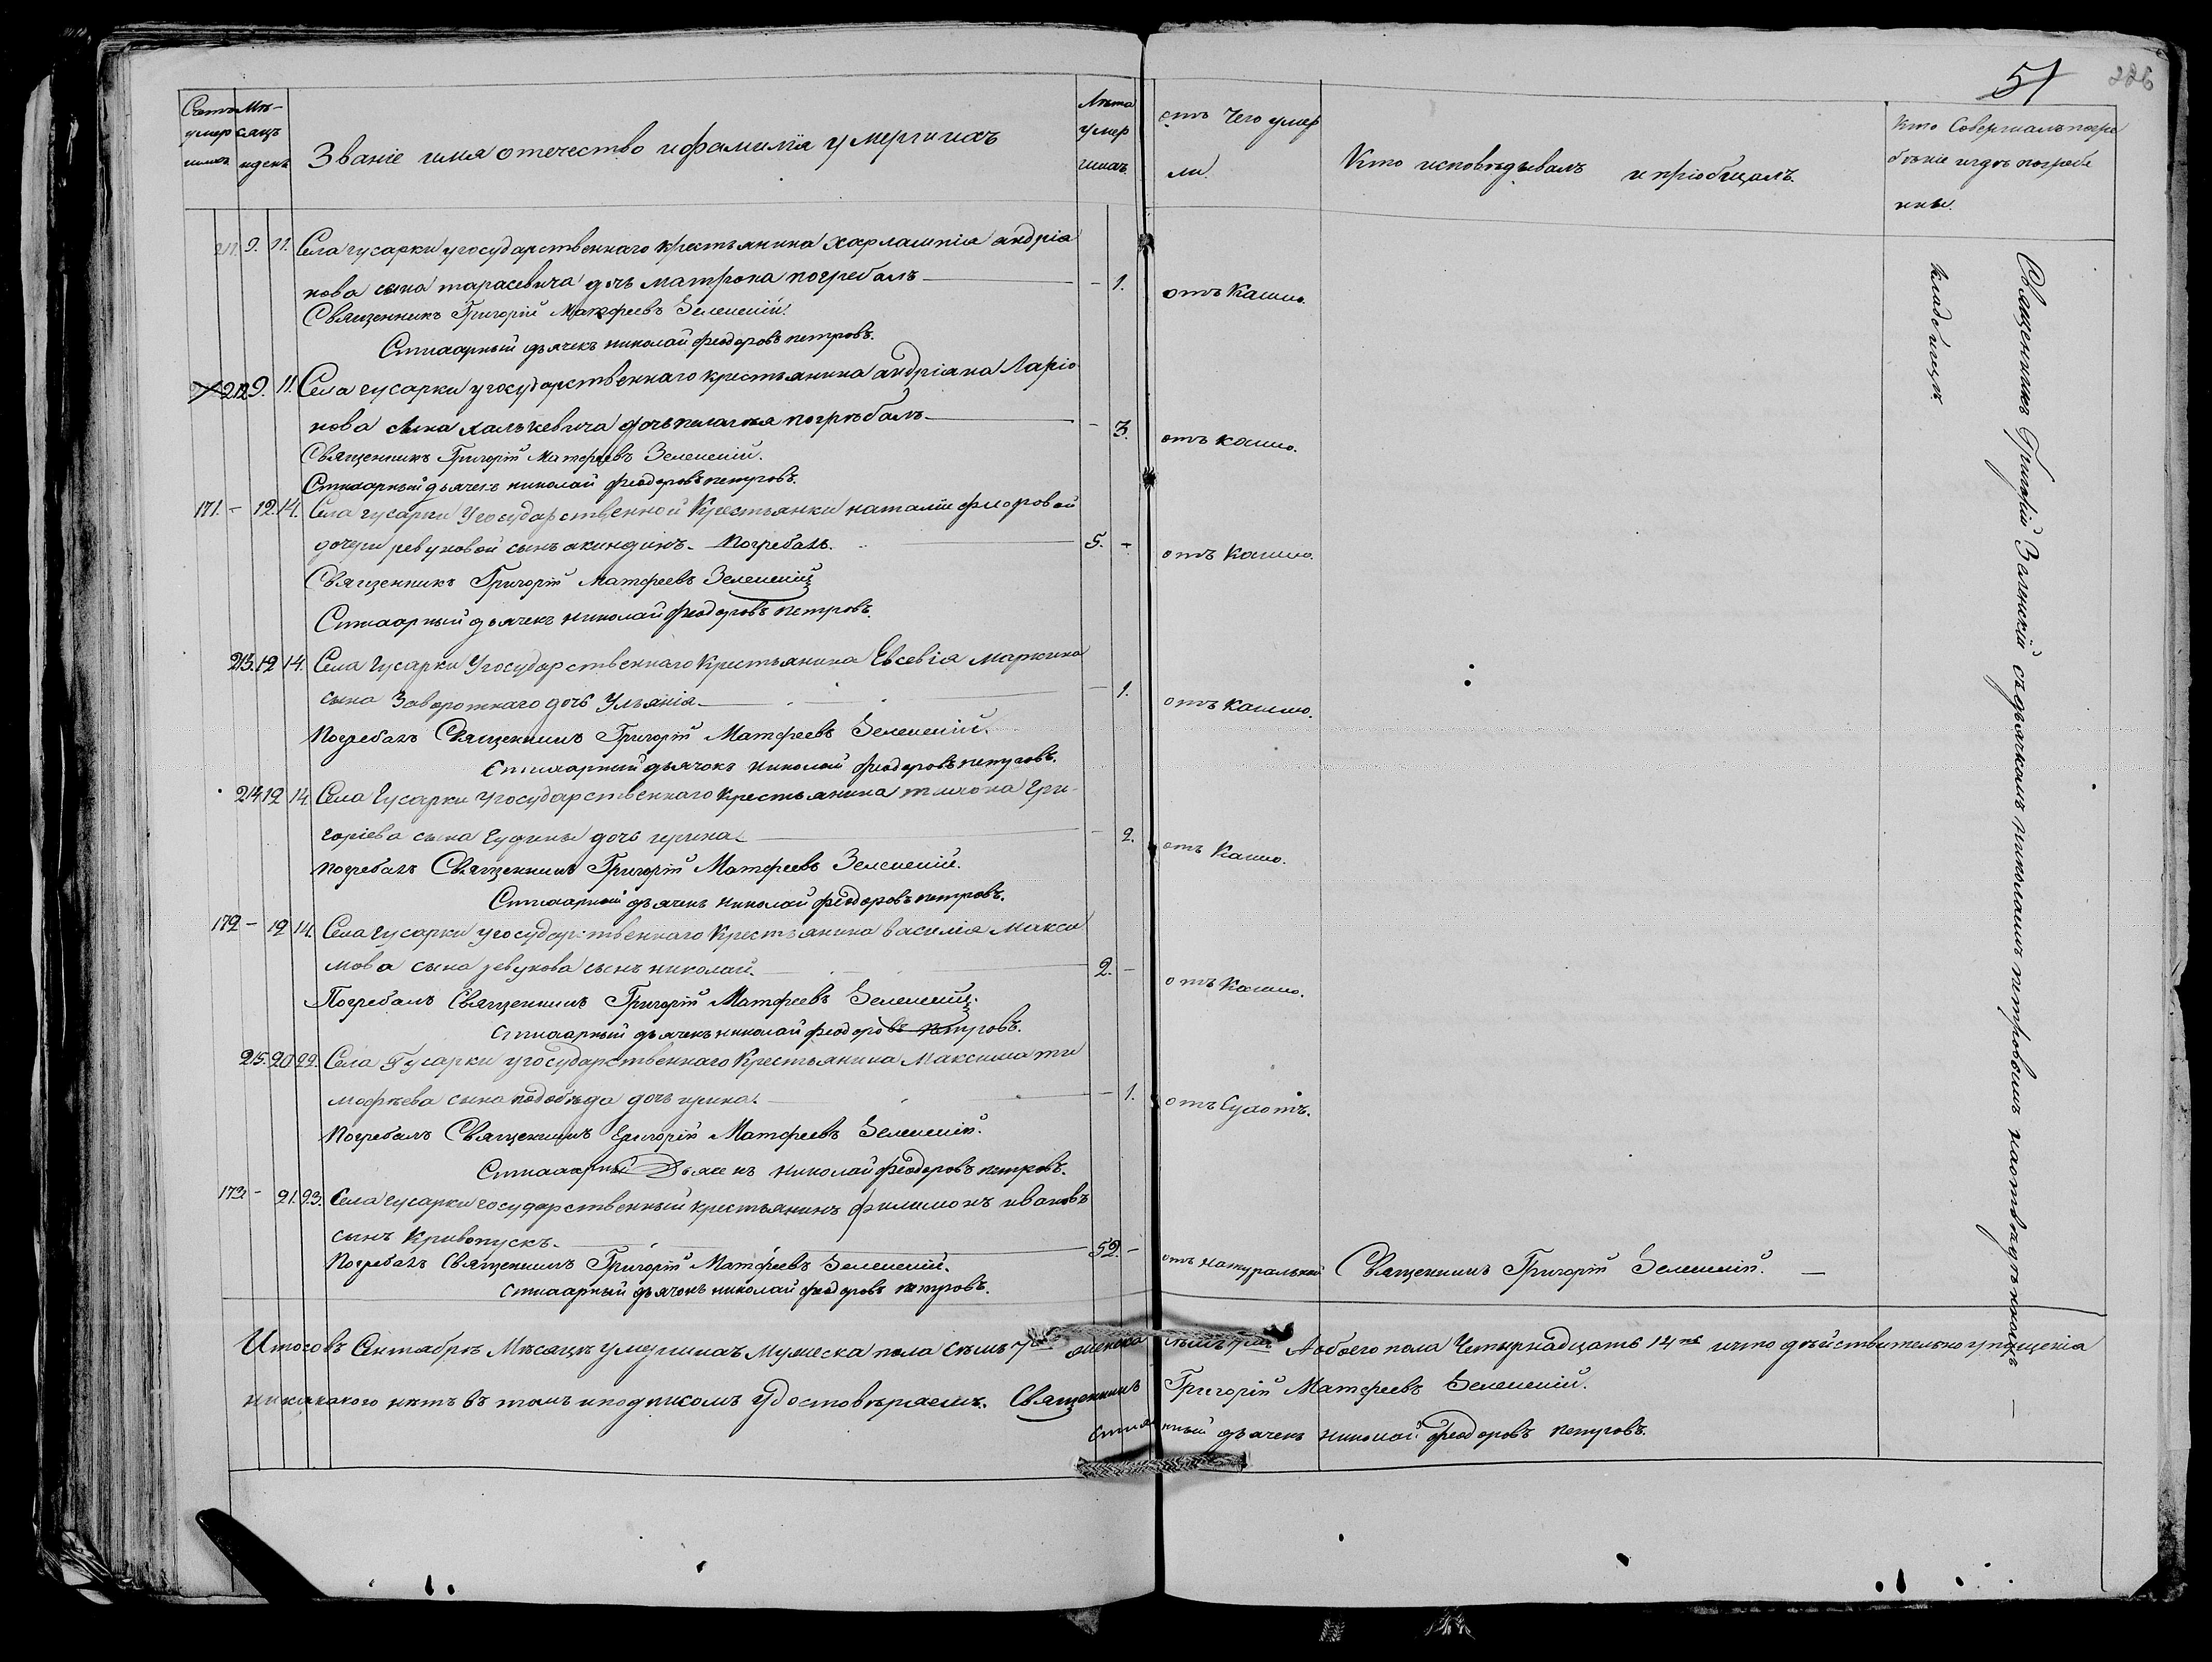 51
226
Счетъ умершихъ
Мѣсяцъ и день
Званіе имя отечество и фамилія умершихъ
Лѣта умершихъ
отъ Чего умерли.
Кто исповѣдывалъ и пріобщалъ.
Кто Совершалъ погребѣніе и гдѣ погребенны.
211. 9. 11. Села гусарки у государственнаго крестьянина харлампія андріа
нова сына тарасевича дочь матрона погребалъ — 1. отъ Кашлю.
Священникъ Григорій Матфеевъ Зеленскій.
Стихарный дьячекъ николай феодоровъ петровъ.
212 9. 11. Села гусарки у государственнаго крестьянина андріана Ларіо
нова сына халькевича дочь пелагия погрѣбалъ — 3. отъ кашлю.
Священникъ Григорій Матфеевъ Зеленскій.
Стихарный дьячекъ николай феодоровъ петровъ.
171. – 12. 14. Села гусарки У государственной Крестьянки наталіи флоровой
дочери ревуновой сынъ акиндинъ. Погребалъ. 5. – отъ Кашлю.
Священникъ Григорій Матфеевъ Зеленскій
Стихарный дьячекъ николай феодоровъ петровъ.
213. 12 14. Села гусарки У государственнаго Крестьянина Евсевія маркина
сына Заворотнаго дочь Ульянія — 1. отъ кашлю.
Погребалъ Священникъ Григорій Матфеевъ Зеленскій.
Стихарный дьячокъ николай феодоровъ петровъ.
214 12 14. Села Гусарки У государственнаго Крестьянина тихона Гри
горіева сына Гудины дочь ирина — 2. отъ Кашлю.
погребалъ Священникъ Григорій Матфеевъ Зеленскій.
Стихарный дьячекъ николай феодоровъ петровъ.
172 – 12 14. Села гусарки у государственнаго Крестьянина василія Макси
мова сына ревунова сынъ николай. 2. – отъ Кашлю.
Погребалъ Священникъ Григорій Матфеевъ Зеленскій.
Стихарный дьячекъ николай феодоровъ петровъ.
215. 20 22. Села Гусарки у государственнаго Крестьянина Максима ти
мофѣева сына подобѣда дочь ирина. — 1. отъ Сухотъ.
Погребалъ Священникъ Григорій Матфеевъ Зеленскій.
Стихарный Дьячекъ николай феодоровъ петровъ.
173 – 21. 23. Села гусарки государственный крестьянинъ филимонъ ивановъ
сынъ Кривопускъ. 52. – отъ натуральной Священникъ Григорій Зеленскій. —
Погребалъ Священникъ Григорій Матфеевъ Зеленскій.
Стихарный дьячокъ николай феодоровъ петровъ.
Священникъ Григорій Зеленскій съ дьячкомъ николаемъ петровымъ на отведенномъ
кладбищѣ.
Итого въ Сентябрѣ Мѣсяцѣ умершихъ Мужеска пола семь 7 женска семь 7 А обоего пола Четырнадцать 14 и что дѣйствительно упущенія
никакого нѣтъ въ томъ и подписомъ Удостовѣряемъ. Священникъ Григорій Матфеевъ Зеленскій.
Стихарный дьячекъ николай феодоровъ петровъ.